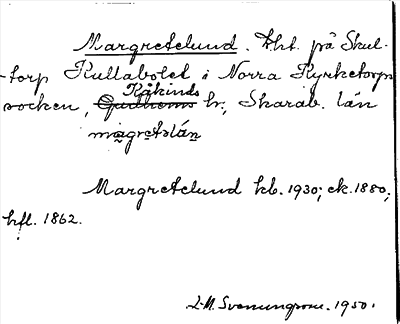 Margretelund. Lht. på Skul-
torp Kullabolet i Norra Kyrketorps
Kåkinds
socken, Gudhems hr; Skarab. län
magretəlán
Margretelund kb. 1930; ek. 1880;
hfl. 1862.
1950.